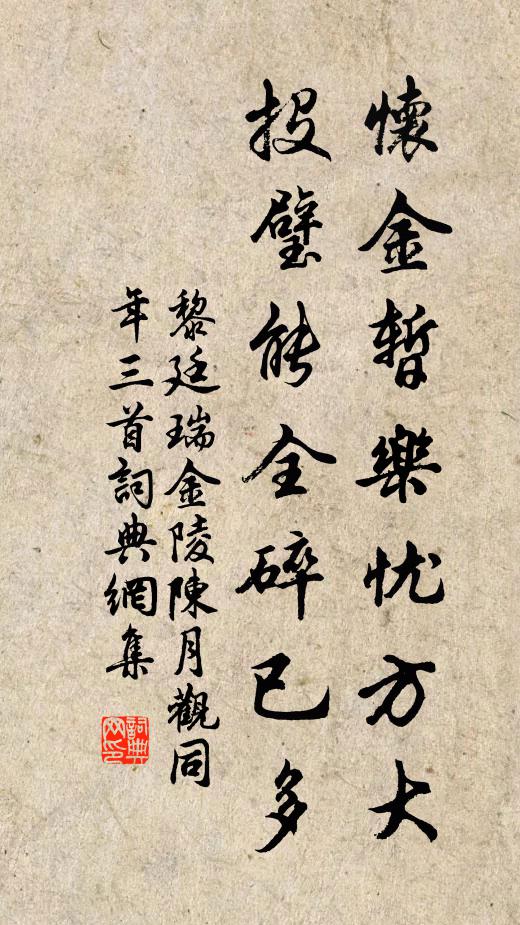 懷金暫樂忧方大
投璧能全碎已多
黎廷瑞金陵陳月觀同
年三首詞典網集
詞典
网印